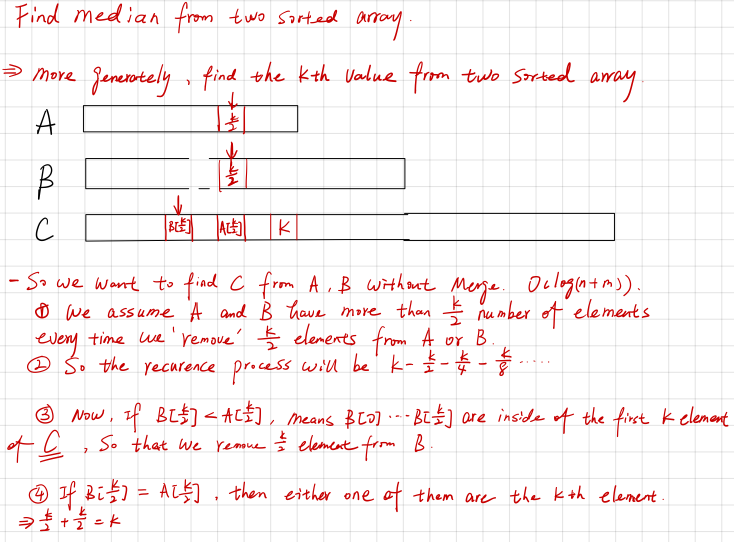 Find median from two sorted array.
⇒ More generately, find the kth value from two sorted array.
A k/2
B k/2
C B[k/2] A[k/2] K
- So we want to find C from A, B without Merge. O(log(n+m)).
① We assume A and B have more than k/2 number of elements
every time we 'remove' k/2 elements from A or B.
② So the recurence process will be k - k/2 - k/4 - k/8 .....
③ Now, If B[k/2] < A[k/2], means B[0] ... B[k/2] are inside of the first k element
of C, So that we remove k/2 element from B.
④ If B[k/2] = A[k/2], then either one of them are the kth element.
⇒ k/2 + k/2 = k